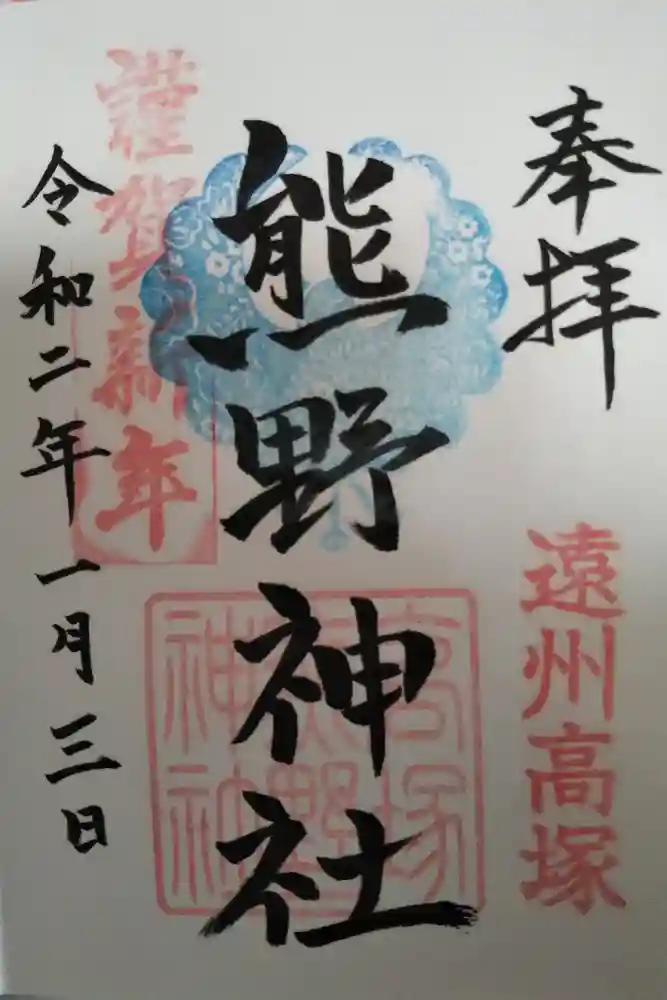 奉拝
遠州高塚
熊野神社
高塚
熊野
神社
謹賀新年
令和二年一月三日